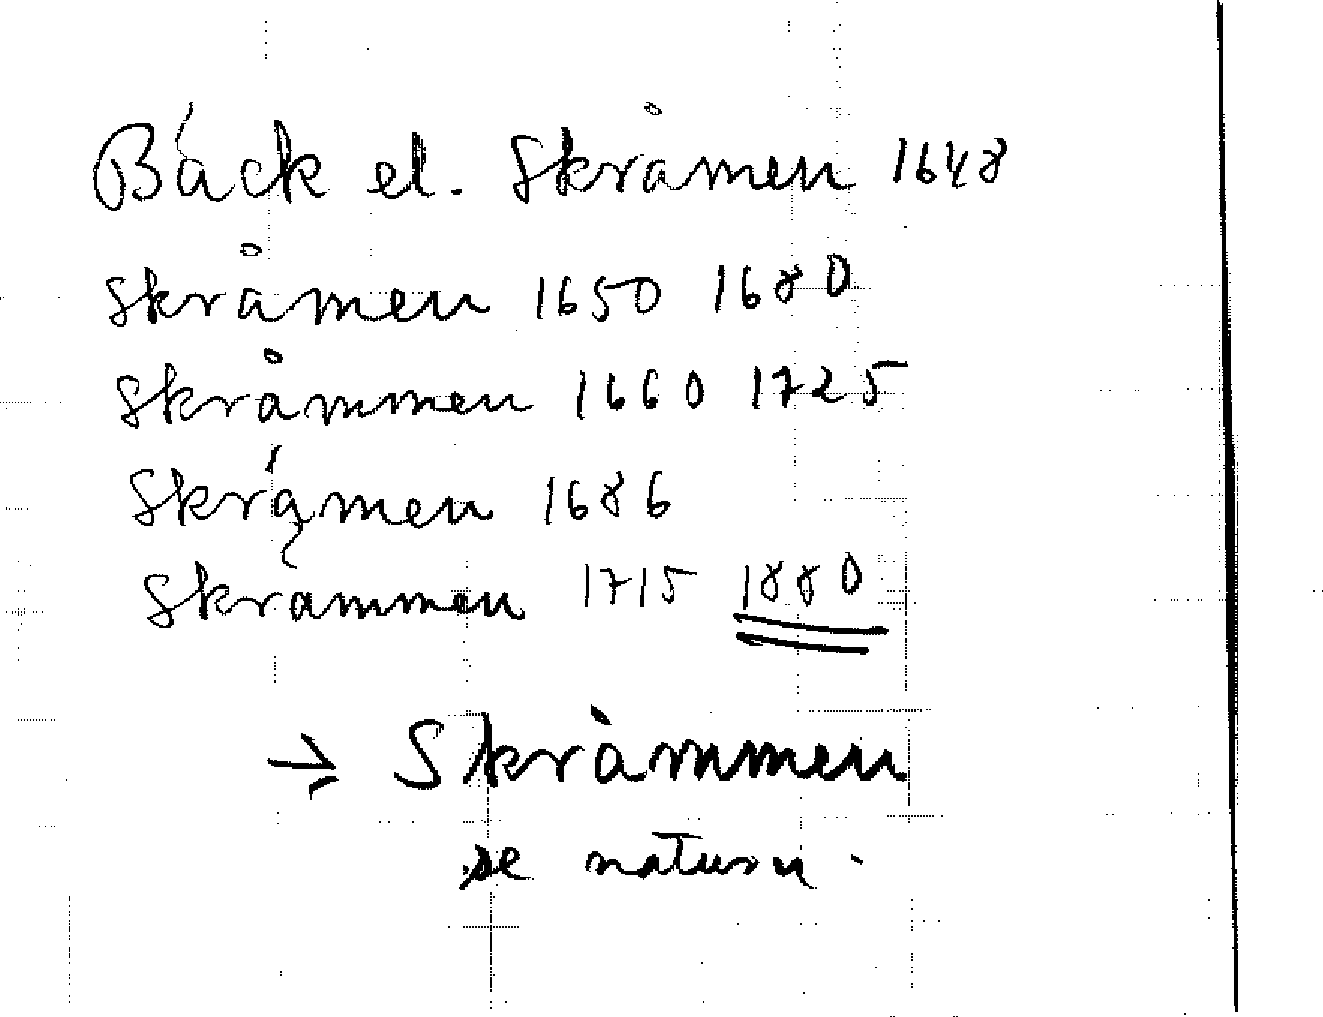 Bäck el. Skråmen 1648
Skråmen 1650 1680
Skråmmen 1660 1725
Skrámen 1686
Skrammen 1715 1880
→ Skråmmen
se naturn.